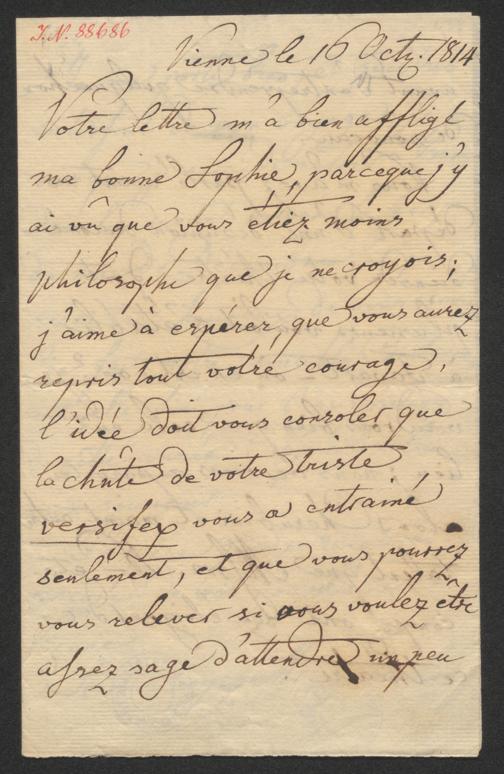 J.N. 88686
Vienne le 16 Octb. 1814
Votre lettre m'a bien affligé
ma bonne Sophie, parceque j'y
ai vû que vous étiez moins
philosophe que je ne croyois;
j'aime à espérer, que vous aurez
repris tout votre courage,
l'idée doit vous consoler que
la chûte de votre triste
versifex vous a entrainé
seulement, et que vous pourrez
vous relever si vous voulez être
assez sage d'attendre un peu